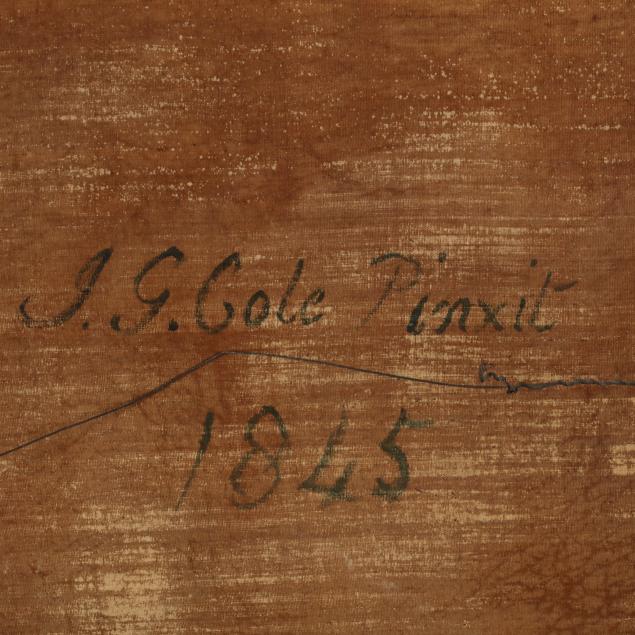 J. G. Cole Pinxit
1845